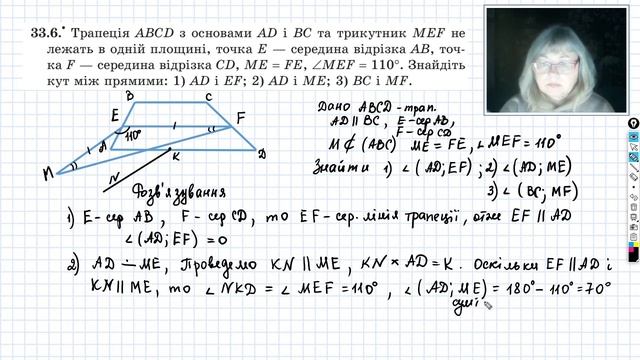 33.6.• Трапеція ABCD з основами AD і BC та трикутник MEF не
лежать в одній площині, точка E — середина відрізка AB, точ-
ка F — середина відрізка CD, ME = FE, ∠MEF = 110°. Знайдіть
кут між прямими: 1) AD і EF; 2) AD і ME; 3) BC і MF.
B C
E F
110°
A K D
M
N
Дано ABCD - трап.
AD ∥ BC, E - сер AB,
F - сер CD
M ⊄ (ABC) ME = FE, ∠MEF = 110°
Знайти 1) ∠(AD; EF); 2) ∠(AD; ME)
3) ∠(BC; MF)
Розв'язування
1) E - сер AB, F - сер CD, то EF - сер. лінія трапеції, отже EF ∥ AD
∠(AD; EF) = 0
2) AD ∸ ME, Проведемо KN ∥ ME, KN × AD = K. Оскільки EF ∥ AD і
KN ∥ ME, то ∠NKD = ∠MEF = 110°, ∠(AD; ME) = 180° - 110° = 70°
сумі